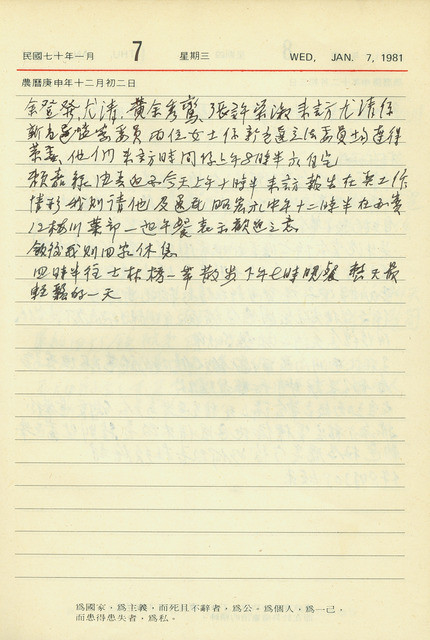 民國七十年一月 7 星期三 WED, JAN. 7, 1981
農曆庚申年十二月初二日
余登發尤清、黃余秀鸞、張許榮淑來訪尤清係
新當選監察委員 兩位女士係新當選立法委員均連得
他們來訪時間係上午8時半我自宅
今天上午十時半來訪報告在美工作
情形我則請他及 中午十二時半在
江梅川 一起午餐表示歡迎之意
飯後我則回家休息
四時半往士林 一帶散步下午七時晚餐 整天最
輕鬆的一天
爲國家，爲主義，而死且不辭者，爲公。爲個人，爲一己，
而患得患失者，爲私。